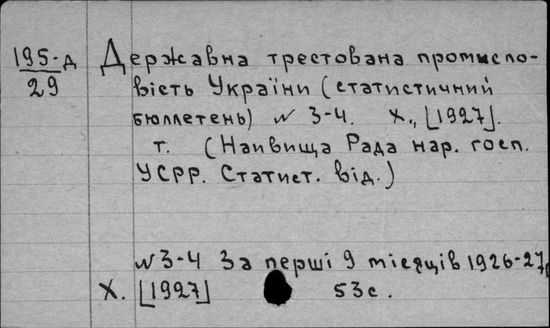 195-д
29
Державна трестована промисло-
вість України (статистичний
бюллетень) № 3-4. Х., [1927].
т. (Найвища Рада нар. госп.
УСРР. Статист. від.)
№ 3-4 За перші 9 місяців 1926-27р
Х. [1927] 53с.